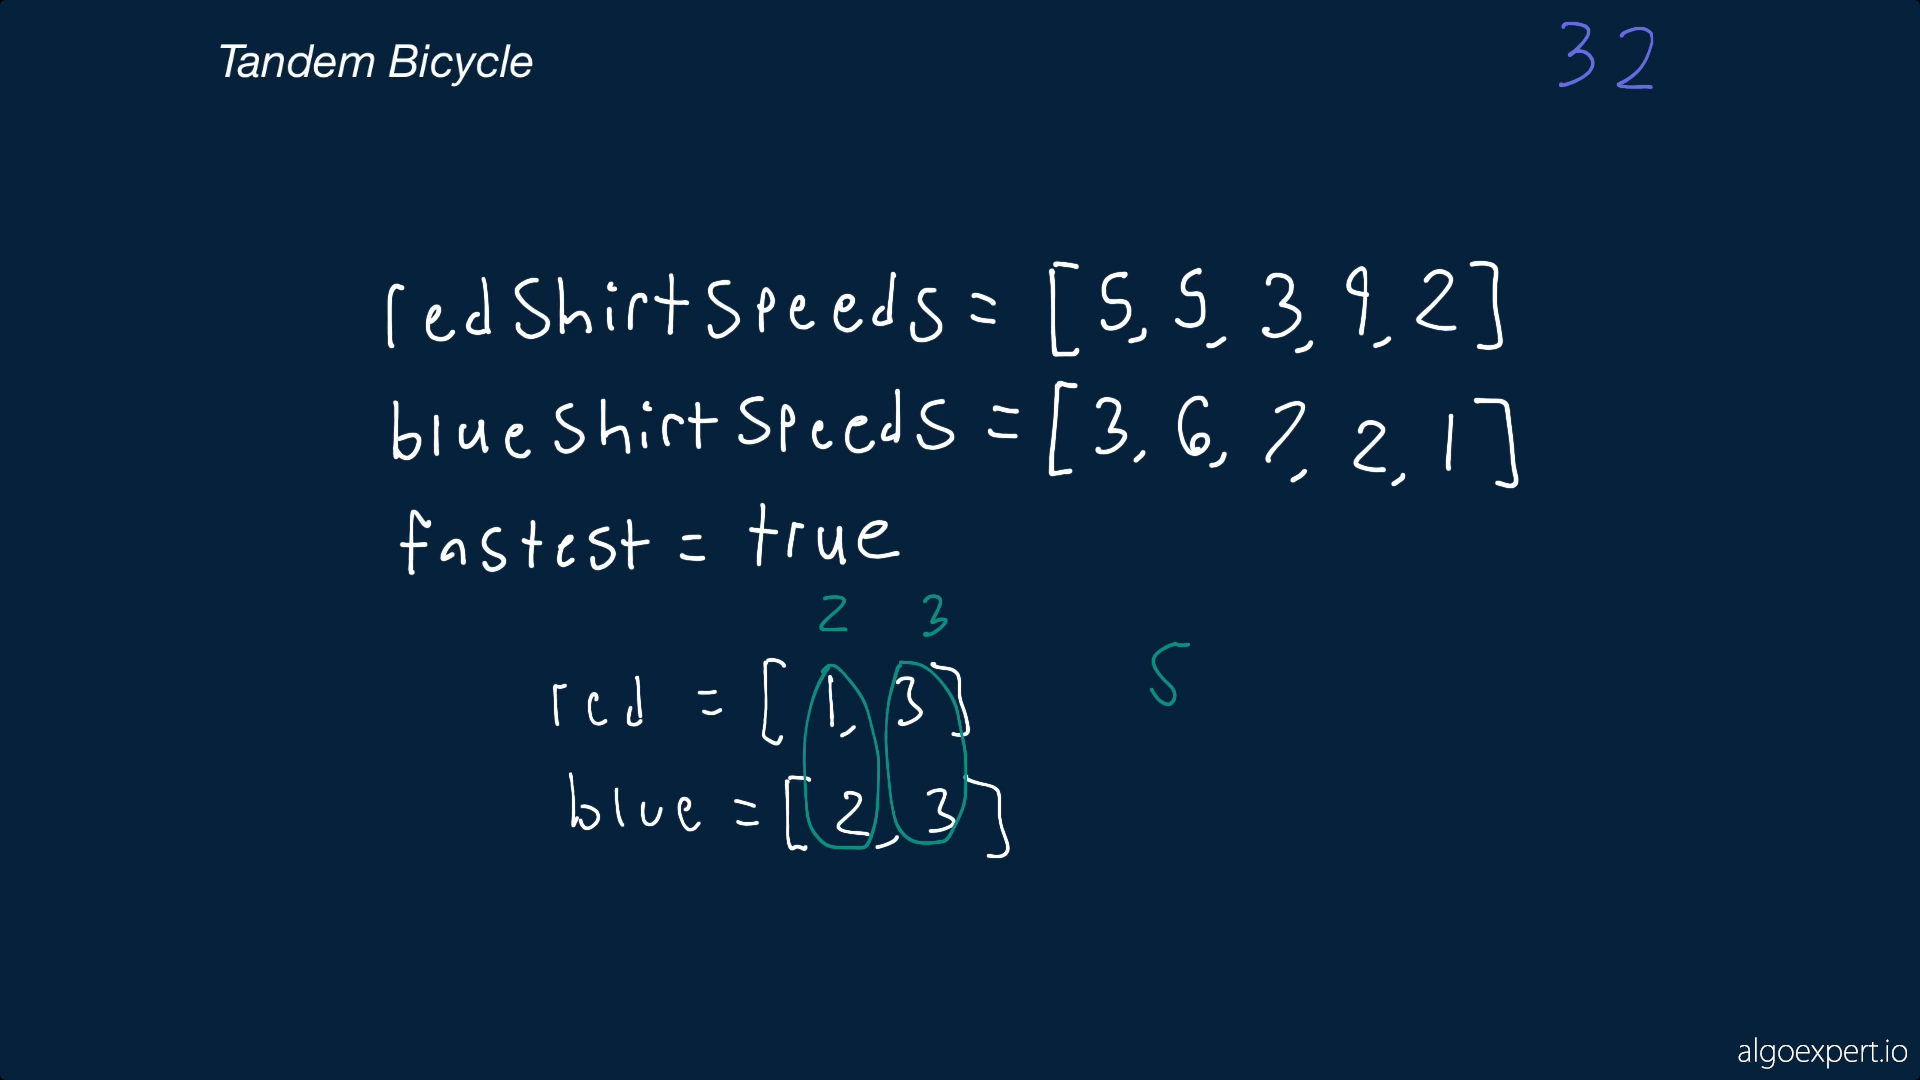 Tandem Bicycle
32
redShirtSpeeds = [5, 5, 3, 9, 2]
blueShirtSpeeds = [3, 6, 7, 2, 1]
fastest = true
2 3
red = [1, 3]
5
blue = [2, 3]
algoexpert.io